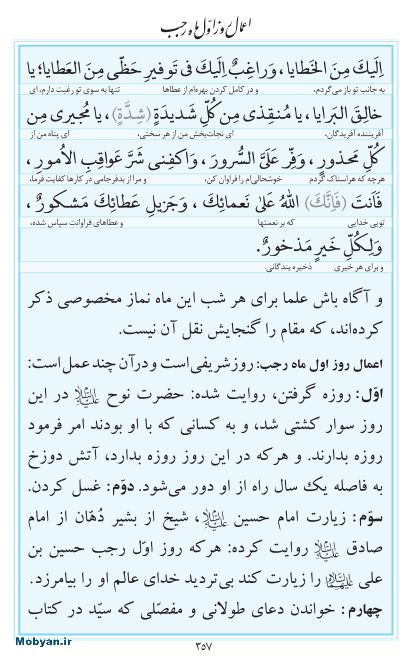 اعمال روز اول ماه رجب
اِلَیكَ مِنَ الخَطایا، وَراغِبٌ اِلَیكَ فی تَوفیرِ حَظّی مِنَ العَطایا؛ یا
به جانب تو باز می‌گردم، و در کامل کردن بهره‌ام از عطاها تنها به سوی تو رغبت دارم، ای
خالِقَ البَرایا، یا مُنقِذی مِن كُلِّ شَدیدَةٍ (شِدَّةٍ)، یا مُجیری مِن
آفریننده آفریدگان، ای نجات‌بخش من از هر سختی، ای پناه من از
كُلِّ مَحذورٍ، وَفِّر عَلَیَّ السُّرورَ، وَاكفِنی شَرَّ عَواقِبِ الاُمورِ،
هرچه که هراسناک گردم خوشحالی‌ام را فراوان کن، و مرا از بدفرجامی در کارها کفایت فرما،
فَاَنتَ (فَاِنَّكَ) اللهُ عَلیٰ نَعمائِكَ، وَجَزیلِ عَطائِكَ مَشكورٌ،
تویی خدایی که بر نعمتها و عطاهای فراوانت سپاس شده،
وَلِكُلِّ خَیرٍ مَذخورٌ.
و برای هر خیری ذخیره بندگانی.
و آگاه باش علما برای هر شب این ماه نماز مخصوصی ذکر
کرده‌اند، که مقام را گنجایش نقل آن نیست.
اعمال روز اول ماه رجب: روز شریفی است و در آن چند عمل است:
اوّل: روزه گرفتن، روایت شده: حضرت نوح علیه‌السلام در این
روز سوار کشتی شد، و به کسانی که با او بودند امر فرمود
روزه بدارند. و هرکه در این روز روزه بدارد، آتش دوزخ
به فاصله یك سال راه از او دور می‌شود. دوّم: غسل کردن.
سوّم: زیارت امام حسین علیه‌السلام، شیخ از بشیر دُهّان از امام
صادق علیه‌السلام روایت کرده: هرکه روز اوّل رجب حسین بن
علی علیهماالسلام را زیارت کند بی‌تردید خدای عالم او را بیامرزد.
چهارم: خواندن دعای طولانی و مفصّلی که سیّد در کتاب
۳۵۷
Mobyan.ir